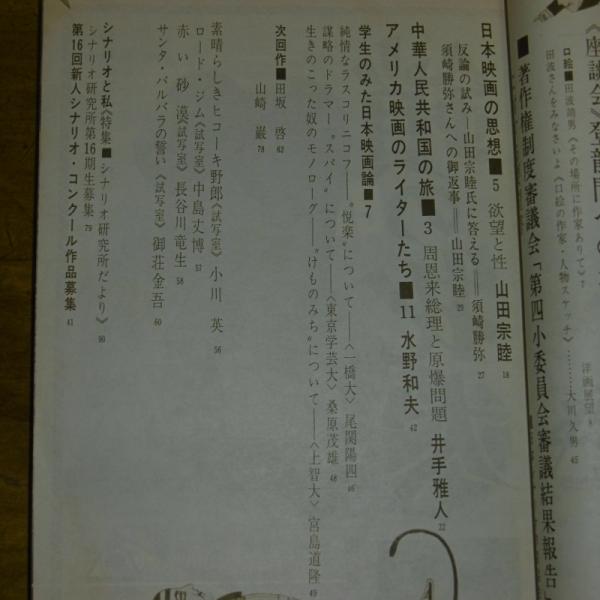 《座談会》登龍門への
口絵■田波靖男《その場所に作家ありて》7
田波さんをみなさいよ《口絵の作家・人物スケッチ》………大川久男 45
洋画展望 8
■著作権制度審議会「第四小委員会審議結果報告」
日本映画の思想■5 欲望と性 山田宗睦 18
反論の試み―山田宗睦氏に答える――須崎勝弥 27
須崎勝弥さんへの御返事――山田宗睦 29
中華人民共和国の旅■3 周恩来総理と原爆問題 井手雅人 32
アメリカ映画のライターたち■11 水野和夫 42
学生のみた日本映画論■7
純情なラスコリニコフ――"悦楽"について――〈一橋大〉尾関陽四 46
謀略のドラマー"スパイ"について――〈東京学芸大〉桑原茂雄 48
生きのこった奴のモノローグ――"けものみち"について――〈上智大〉宮島道隆 49
次回作■田坂 啓 62
山崎 巌 78
素晴らしきヒコーキ野郎《試写室》小川 英 56
ロード・ジム《試写室》中島丈博 57
赤い砂漠《試写室》長谷川竜生 58
サンタ・バルバラの誓い《試写室》御荘金吾 60
シナリオと私《特集■シナリオ研究所だより》90
シナリオ研究所第16期生募集 79
第16回新人シナリオ・コンクール作品募集 41